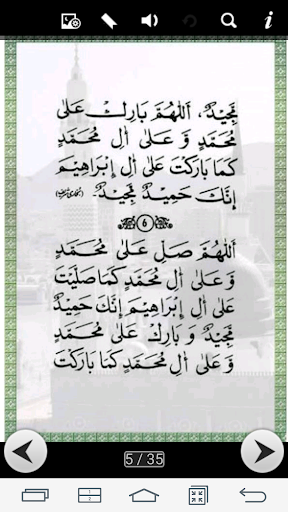 مَّجِيْدٌ، اَللّٰهُمَّ بَارِكْ عَلٰى
مُحَمَّدٍ وَّ عَلٰى اٰلِ مُحَمَّدٍ
كَمَا بَارَكْتَ عَلٰى اٰلِ اِبْرَاهِيْمَ
اِنَّكَ حَمِيْدٌ مَّجِيْدٌ۔
6
اَللّٰهُمَّ صَلِّ عَلٰى مُحَمَّدٍ
وَّ عَلٰى اٰلِ مُحَمَّدٍ كَمَا صَلَّيْتَ
عَلٰى اٰلِ اِبْرَاهِيْمَ اِنَّكَ حَمِيْدٌ
مَّجِيْدٌ وَّ بَارِكْ عَلٰى مُحَمَّدٍ
وَّ عَلٰى اٰلِ مُحَمَّدٍ كَمَا بَارَكْتَ
5 / 35